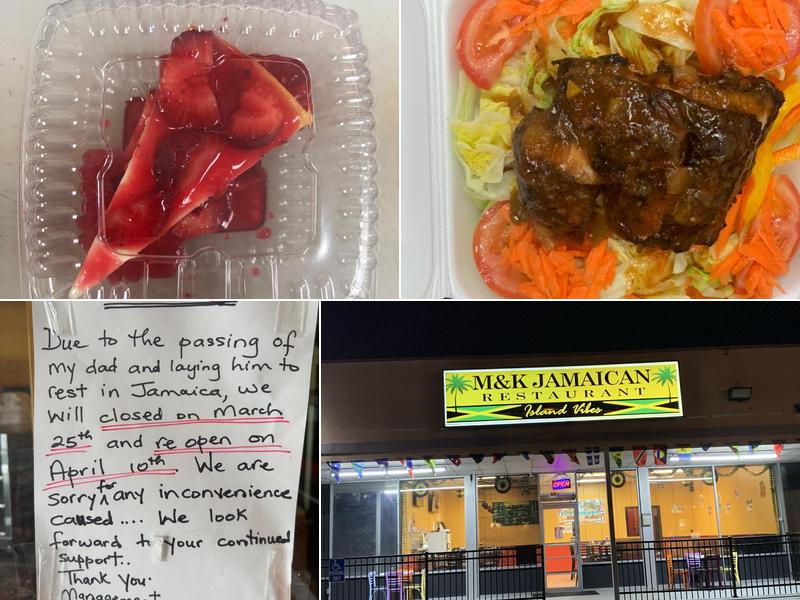 Due to the passing of
my dad and laying him to
rest in Jamaica, we
will closed on March
25th and re open on
April 10th. We are
sorry for any inconvenience
caused.... We look
forward to your continued
support..
Thank you.
Management
M&K JAMAICAN
RESTAURANT
Island Vibes
OPEN